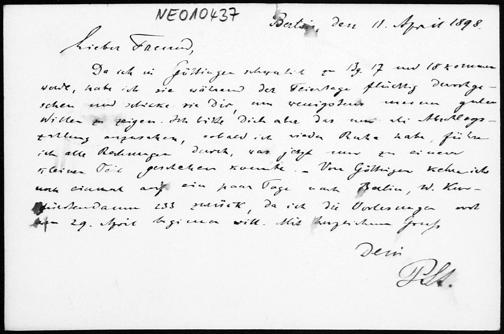 NEO10437
Berlin, den 11. April 1898.
Lieber Freund,
Da ich in Göttingen schwerlich zu Bg. 17 und 18 kommen
werde, habe ich sie während der Feiertage flüchtig durchge-
sehen und schicke sie Dir, um wenigstens meinen guten
Willen zu zeigen. Ich bitte Dich aber das nur als Abschlags-
zahlung anzusehen, sobald ich wieder Ruhe habe, führe
ich alle Rechnungen durch, was jetzt nur zu einem
kleinen Teil geschehen konnte. – Von Göttingen kehre ich
noch einmal auf ein paar Tage nach Berlin, W. Kur-
fürstendamm 233 zurück, da ich die Vorlesungen erst
am 29. April beginnen will. Mit herzlichem Gruß
Dein
P. St.